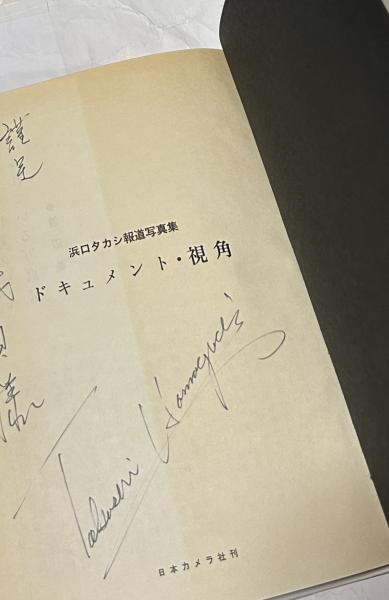 謹呈
浜口タカシ報道写真集
ドキュメント・視角
Takashi Hamaguchi
日本カメラ社刊